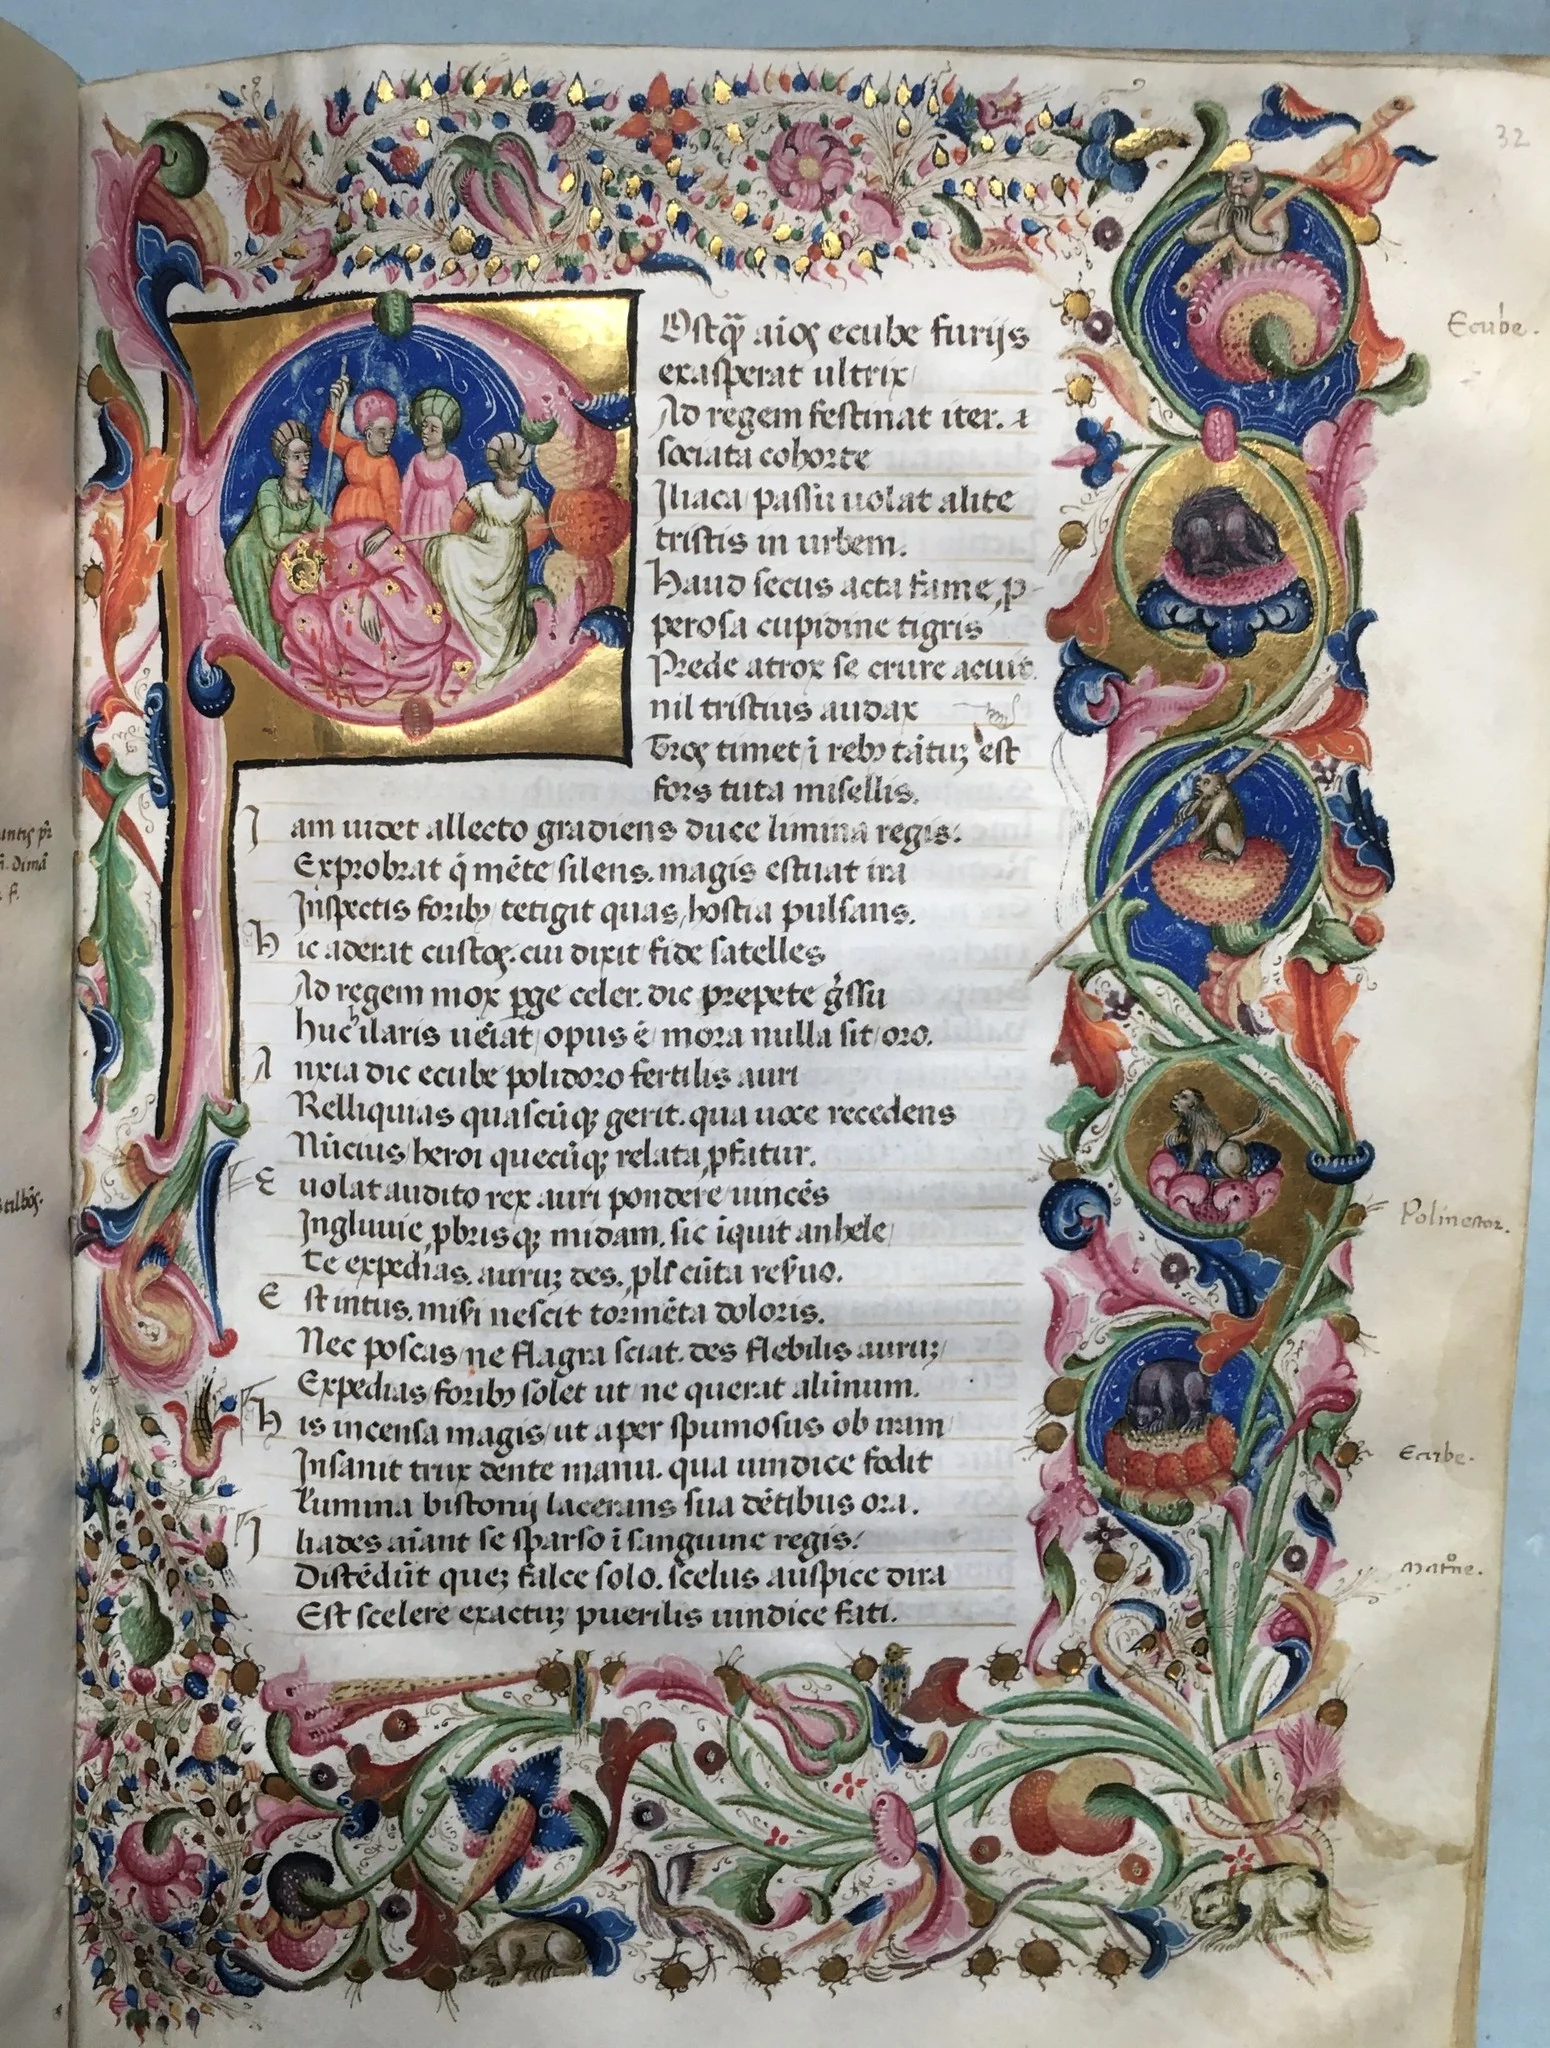 32
Ostq̃ aĩoꝫ ecube furijs
exasperat ultrix/
Ad regem festinat iter. ⁊
sociata cohorte
Iliaca/ passu uolat alite
tristis in urbem.
Haud secus acta fame, ꝓ-
perosa cupidine tigris
Prede atrox se crure acuit
nil tristius audax
timet ĩ rebꝫ tãtuꝫ est
fors tuta misellis.
Ecube.
Iam uidet allecto gradiens duce limina regis:
Exprobrat q̃ mẽte/ silens. magis estuat ira
Inspectis foribꝫ/ tetigit quas/ hostia pulsans.
Hic aderat custos. cui dixit fide satelles
Ad regem mox ꝑge celer. dic prepete gͥssu
huc hilaris uẽiat/ opus ẽ/ mora nulla sit/ oro.
Anxia dic ecube polidoro fertilis auri
Relliquias quascũqꝫ gerit. qua uoce recedens
Nũcius/ heroi quecũqꝫ relata, ꝓfatur.
Euolat audito rex auri pondere/ uincẽs
Ingluuie, ꝓbrisqꝫ midam. sic ĩquit anhele/
Te expedias. auruꝫ des. cũta
Polinestor.
Est intus. nisi nescit tormẽta doloris.
Nec poscas/ ne flagra sciat. des flebilis auruꝫ/
Expedias foribꝫ solet ut/ ne querat alũnum.
His incensa magis/ ut aper spumosus ob iram
Insanit trux dente manu. qua uindice fodit
Lumina bistonij lacerans sua dẽtibus ora.
Ecube.
Iliades aĩant se sparso ĩ sanguine regis:
Distẽdũt queꝫ falce solo. scelus auspice dira
Est scelere exactuꝫ puerilis uindice fati.